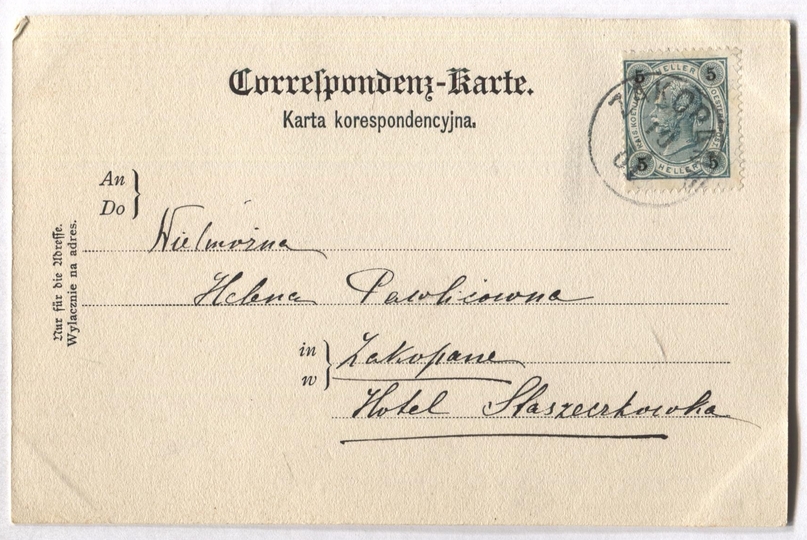 Correspondenz-Karte.
Karta korespondencyjna.
5 HELLER 5
5 HELLER 5
ZAKOPANE
10
An
Do
Wielmożna
Helena Pawlicówna
in
w
Zakopane
Hotel Staszeczkówka
Nur für die Adresse.
Wylacznie na adres.